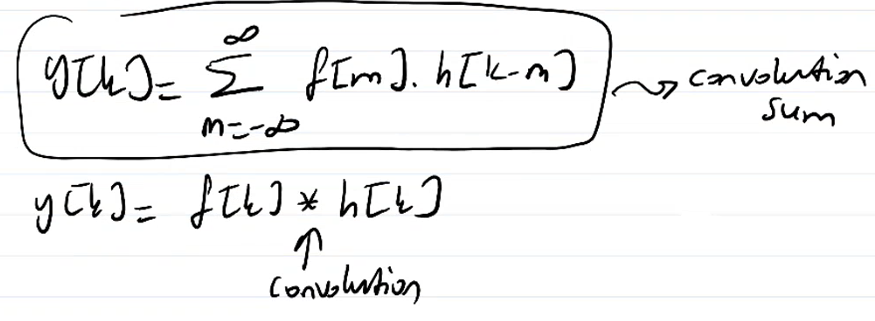 y[k] = ∑_{m=-∞}^{∞} f[m] . h[k-m] ⇝ convolution sum
y[k] = f[k] * h[k]
↑
convolution